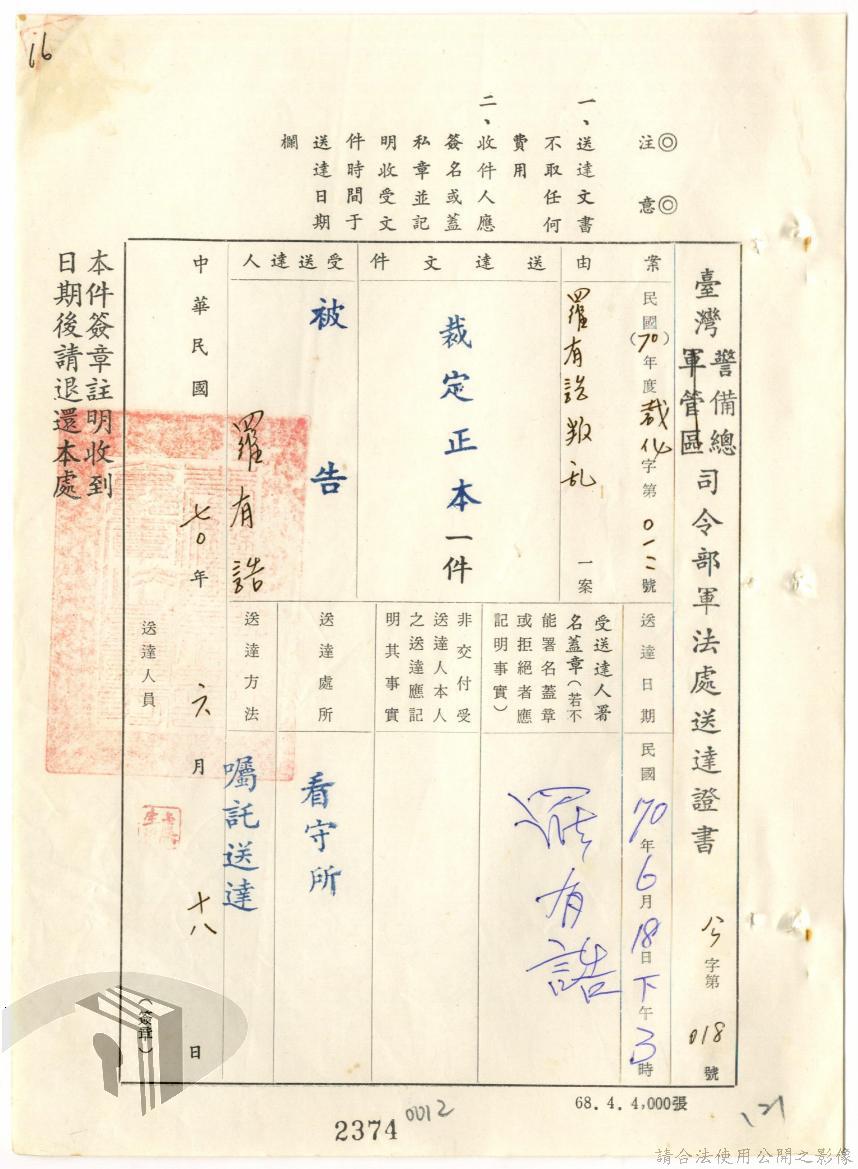 16
◎注意◎
一、送達文書
不取任何
費用
二、收件人應
簽名或蓋
私章並記
明收受文
件時間于
送達日期
欄
臺灣警備總軍管區司令部軍法處送達證書 字第018號
案由
民國(70)年度裁化字第〇一二號
羅有誥叛乱一案
送達日期
民國70年6月18日下午3時
受送達人署
名蓋章(若不
能署名蓋章
或拒絕者應
記明事實)
羅有誥
送達文件
裁定正本一件
非交付受
送達人本人
之送達應記
明其事實
受送達人
被告
羅有誥
送達處所
看守所
送達方法
囑託送達
中華民國七〇年六月十八日
送達人員
(簽章)
本件簽章註明收到
日期後請退還本處
68.4.4,000張
2374
0012
121
請合法使用公開之影像